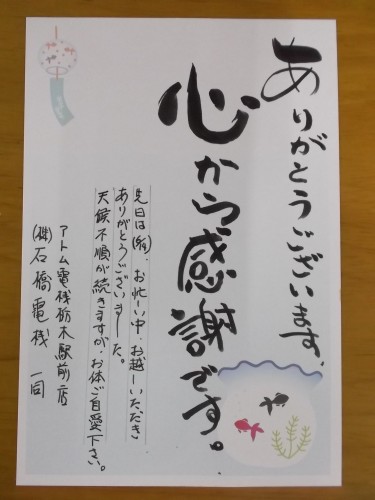 ありがとうございます、
心から感謝です。
先日は(夕)、お忙い中、お越しいただき
ありがとうございました。
天候不順が続きますが、お体ご自愛下さい。
アトム電機栃木駅前店
(株)石橋電機 一同